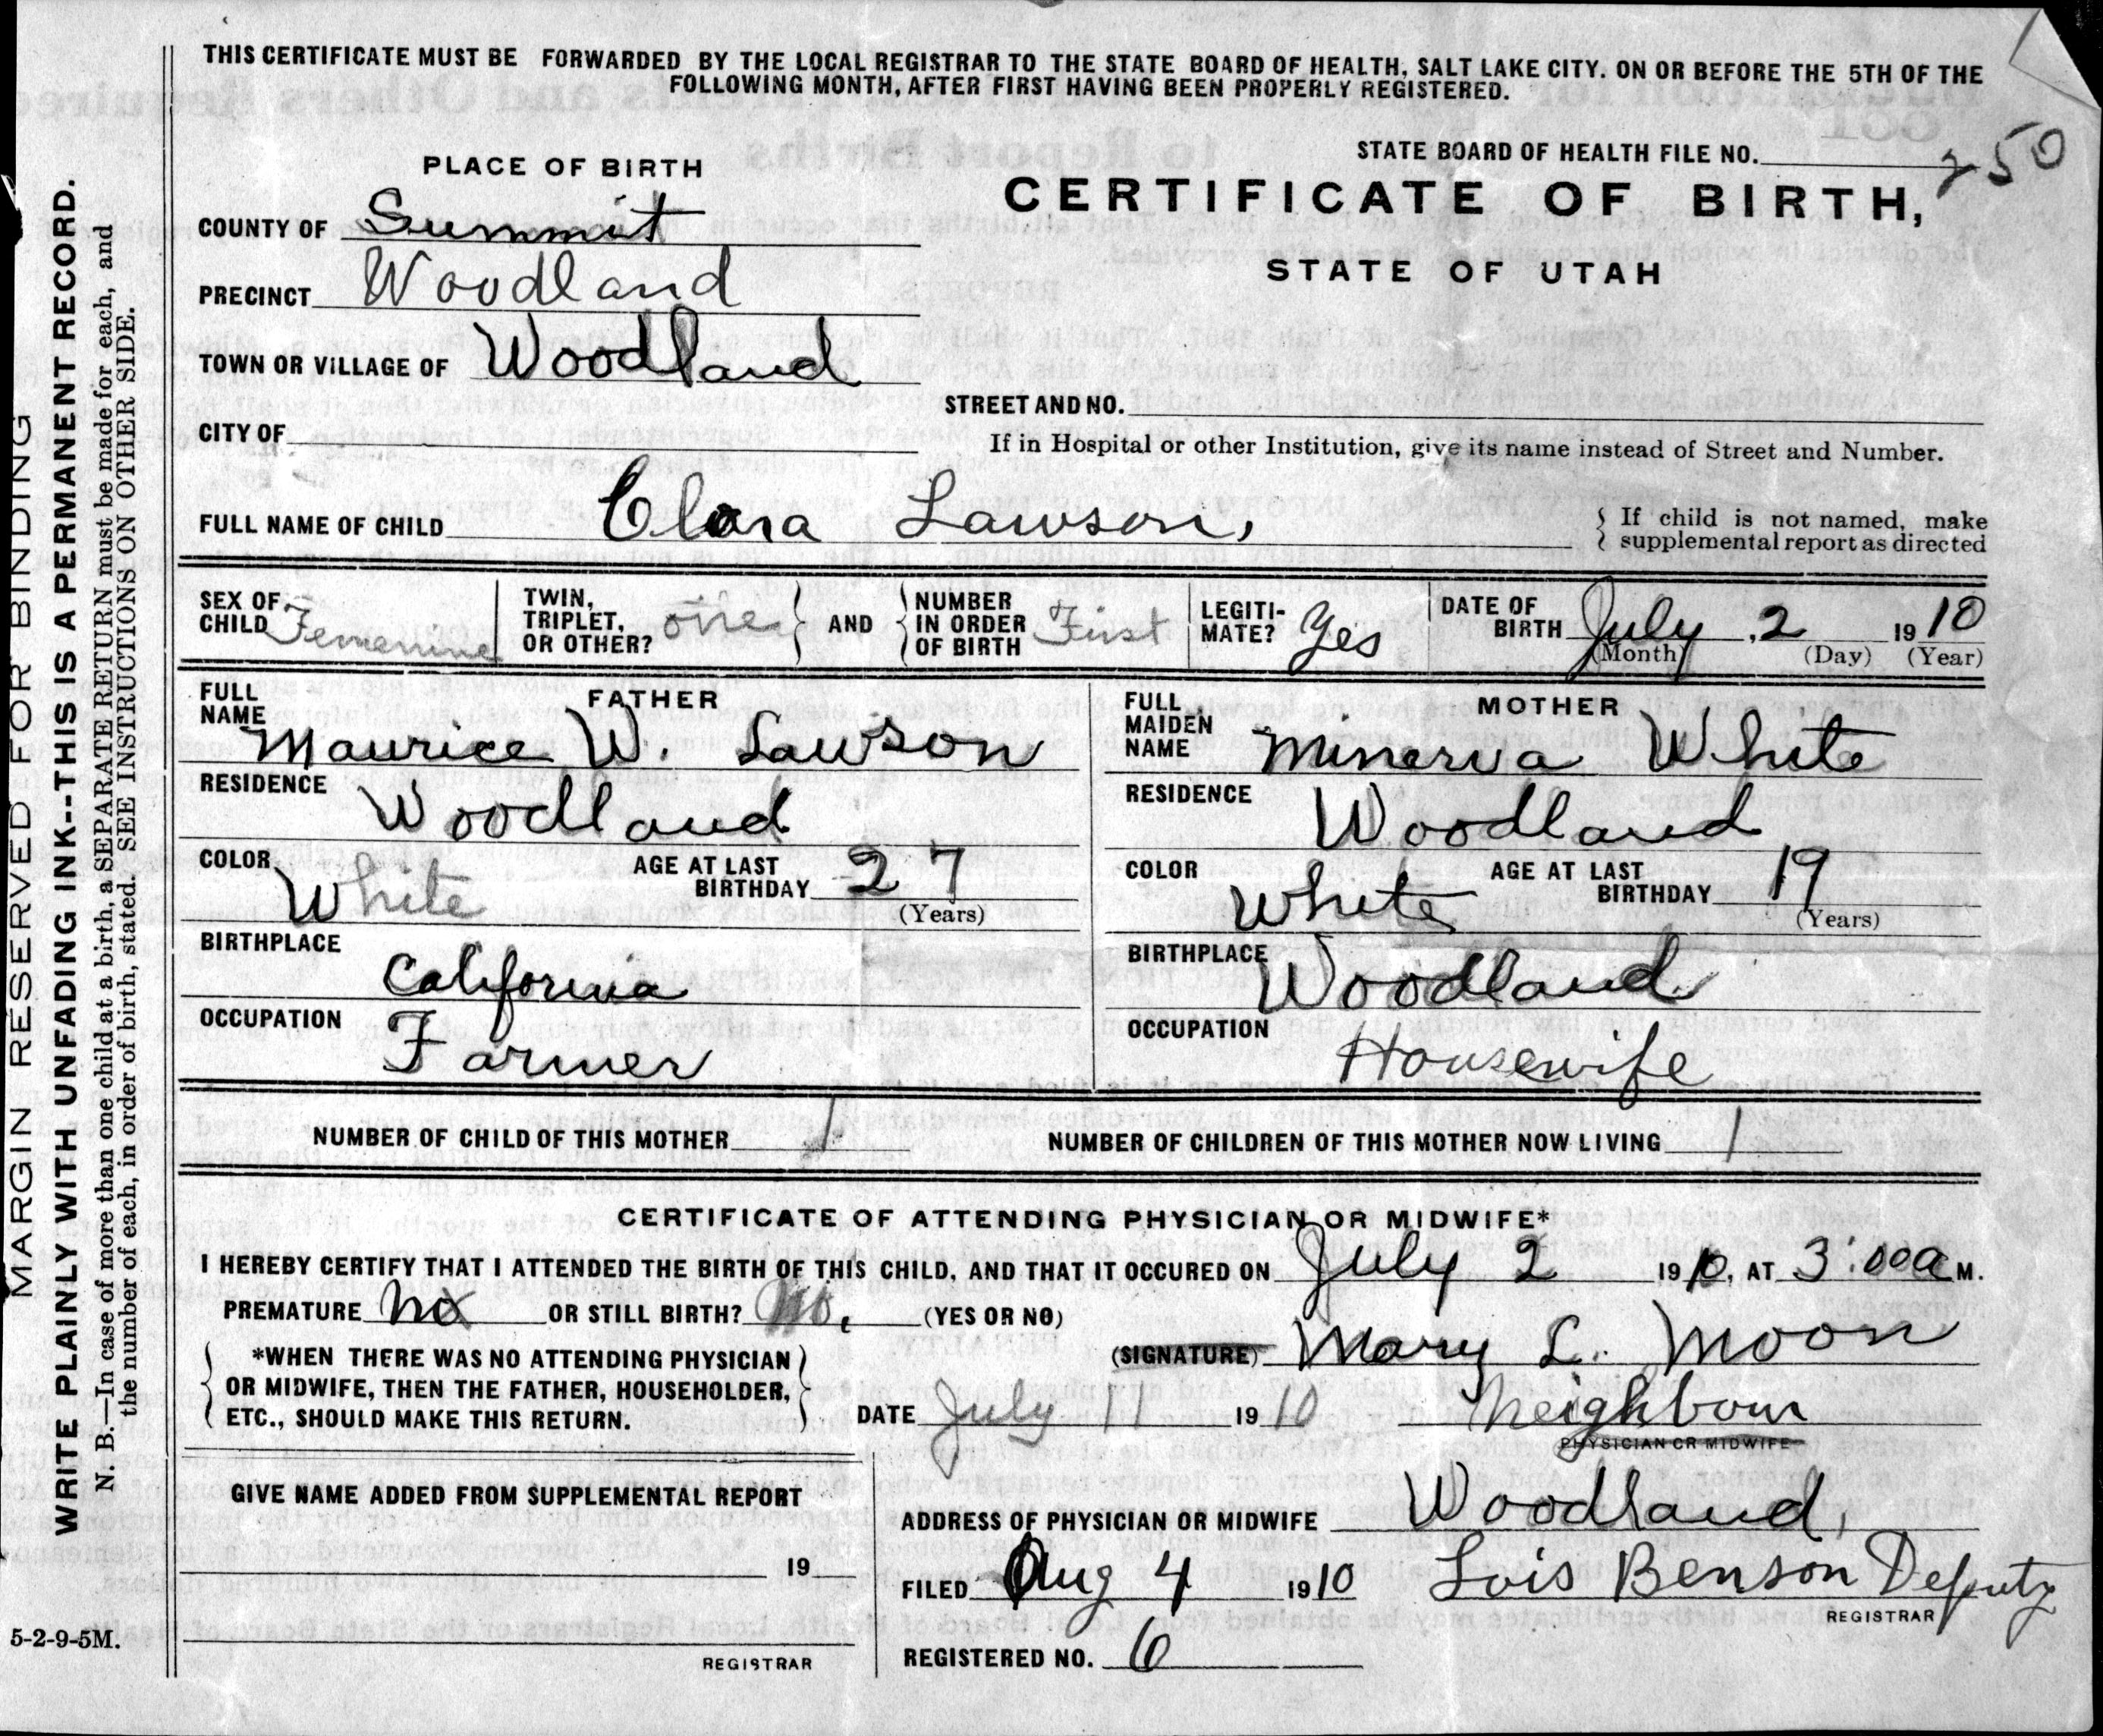 THIS CERTIFICATE MUST BE FORWARDED BY THE LOCAL REGISTRAR TO THE STATE BOARD OF HEALTH, SALT LAKE CITY. ON OR BEFORE THE 5TH OF THE
FOLLOWING MONTH, AFTER FIRST HAVING BEEN PROPERLY REGISTERED.
STATE BOARD OF HEALTH FILE NO. 250
CERTIFICATE OF BIRTH,
STATE OF UTAH
PLACE OF BIRTH
COUNTY OF Summit
PRECINCT Woodland
TOWN OR VILLAGE OF Woodland
CITY OF
STREET AND NO.
If in Hospital or other Institution, give its name instead of Street and Number.
FULL NAME OF CHILD Clara Lawson,
{ If child is not named, make
supplemental report as directed
SEX OF CHILD Femenine
TWIN, TRIPLET, OR OTHER? one } AND { NUMBER IN ORDER OF BIRTH First
LEGITI-MATE? Yes
DATE OF BIRTH July 2 1910
(Month) (Day) (Year)
FATHER
FULL NAME Maurice W. Lawson
RESIDENCE Woodland
COLOR White AGE AT LAST BIRTHDAY 27
(Years)
BIRTHPLACE California
OCCUPATION Farmer
MOTHER
FULL MAIDEN NAME Minerva White
RESIDENCE Woodland
COLOR White AGE AT LAST BIRTHDAY 19
(Years)
BIRTHPLACE Woodland
OCCUPATION Housewife
NUMBER OF CHILD OF THIS MOTHER 1 NUMBER OF CHILDREN OF THIS MOTHER NOW LIVING 1
CERTIFICATE OF ATTENDING PHYSICIAN OR MIDWIFE*
I HEREBY CERTIFY THAT I ATTENDED THE BIRTH OF THIS CHILD, AND THAT IT OCCURED ON July 2 1910, AT 3:00 a M.
PREMATURE No OR STILL BIRTH? No. (YES OR NO)
{ *WHEN THERE WAS NO ATTENDING PHYSICIAN
OR MIDWIFE, THEN THE FATHER, HOUSEHOLDER,
ETC., SHOULD MAKE THIS RETURN. }
(SIGNATURE) Mary L. Moon
DATE July 11 1910 Neighbour
PHYSICIAN OR MIDWIFE
GIVE NAME ADDED FROM SUPPLEMENTAL REPORT
19
REGISTRAR
ADDRESS OF PHYSICIAN OR MIDWIFE Woodland,
FILED Aug 4 1910 Lois Benson Deputy
REGISTRAR
REGISTERED NO. 6
5-2-9-5M.
MARGIN RESERVED FOR BINDING
WRITE PLAINLY WITH UNFADING INK--THIS IS A PERMANENT RECORD.
N. B.—In case of more than one child at a birth, a SEPARATE RETURN must be made for each, and
the number of each, in order of birth, stated. SEE INSTRUCTIONS ON OTHER SIDE.